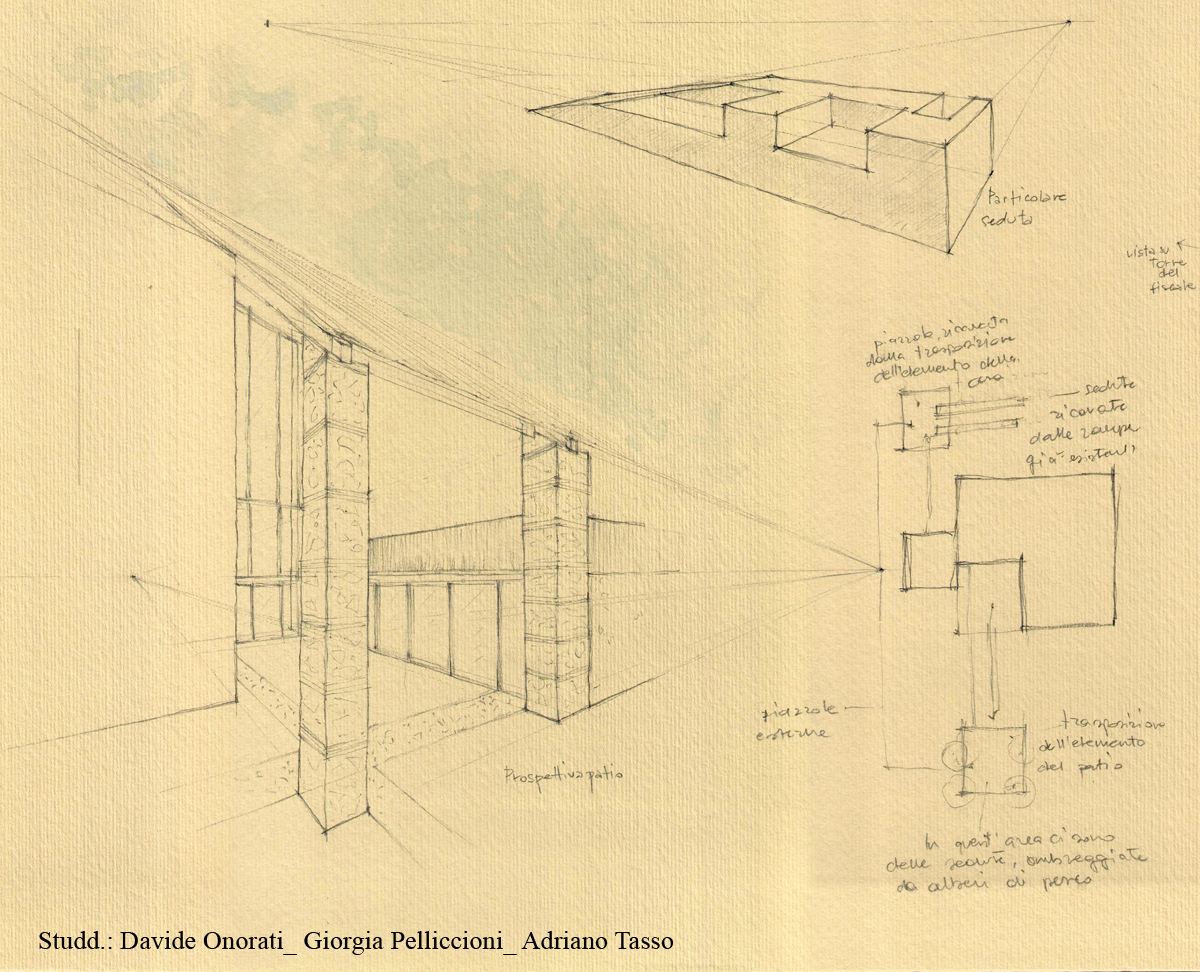 Particolare
seduta
vista su
torre
del
fiscale
piazzole, ricavata
dalla trasposizione
dell'elemento della
casa
sedute
ricavate
dalle rampe
già esistenti
piazzole
esterne
trasposizione
dell'elemento
del patio
Prospettiva patio
In quest'area ci sono
delle sedute, ombreggiate
da alberi di pesco
Studd.: Davide Onorati_ Giorgia Pelliccioni_ Adriano Tasso